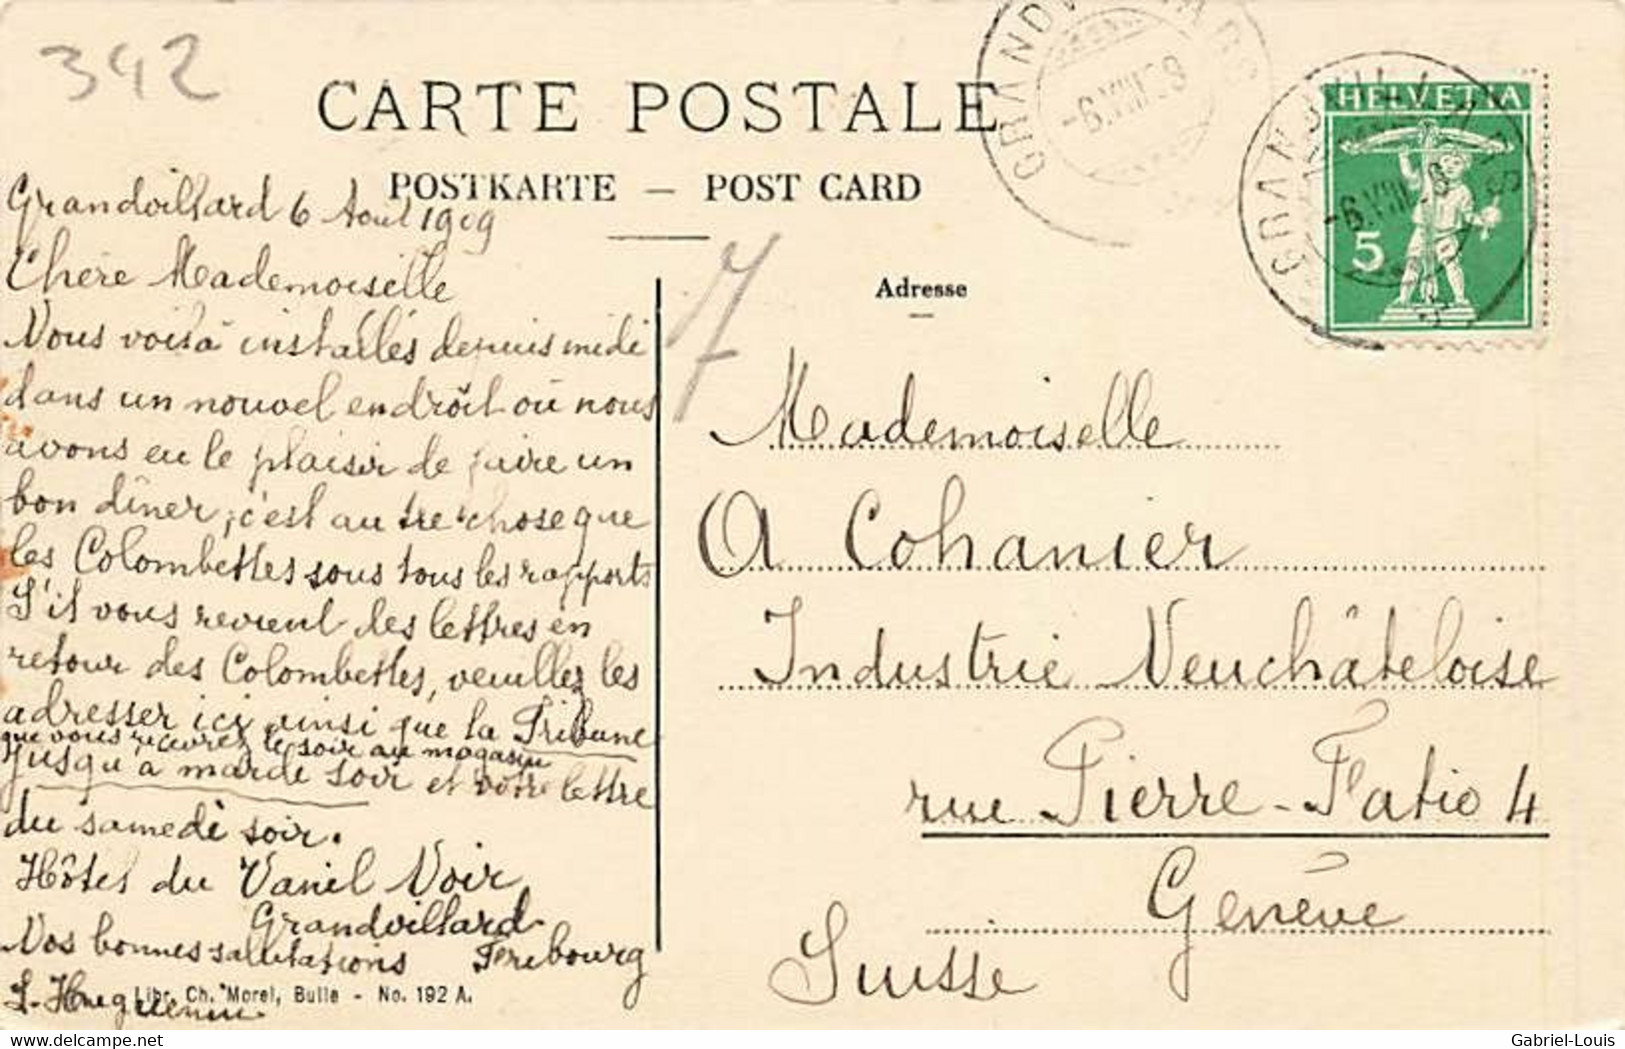 342
CARTE POSTALE
POSTKARTE — POST CARD
HELVETIA
5
Grandvillard 6 Aout 1909
Chère Mademoiselle
Nous voilà installés depuis midi
dans un nouvel endroit où nous
avons eu le plaisir de faire un
bon dîner, c'est autre chose que
les Colombettes sous tous les rapports
S'il vous revient des lettres en
retour des Colombettes, veuillez les
adresser ici ainsi que la Tribune
que vous recevrez le soir au magasin
jusqu'à mardi soir et votre lettre
du samedi soir.
Hôtel du Vanil Noir
Grandvillard
Vos bonnes salutations Fribourg
Libr. Ch. Morel, Bulle - No. 192 A.
7
Adresse
Mademoiselle
A Cohanier
Industrie Neuchâteloise
rue Pierre-Fatio 4
Genève
Suisse
www.delcampe.net
Gabriel-Louis